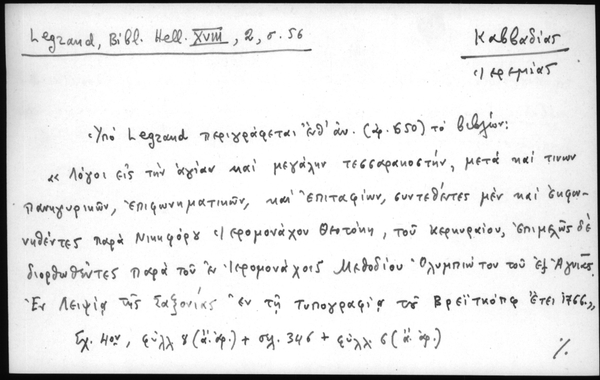 Legrand, Bibl. Hell. XVIII, 2, σ. 56
Καββαδίας
Ἱερεμίας
Ὑπό Legrand περιγράφεται ἐνθ' ἀν. (ἀρ. 650) τό βιβλίον:
«Λόγοι εἰς τήν ἁγίαν καί μεγάλην τεσσαρακοστήν, μετά καί τινων
πανηγυρικῶν, ἐπιφωνηματικῶν, καί ἐπιταφίων, συντεθέντες μέν καί ἐκφω-
νηθέντες παρά Νικηφόρου Ἱερομονάχου Θεοτόκη, τοῦ Κερκυραίου, ἐπιμελῶς δέ
διορθωθέντες παρά τοῦ ἐν Ἱερομονάχοις Μεθοδίου Ὀλυμπιώτου τοῦ ἐξ Ἁγνιᾶς.
Ἐν Λειψίᾳ τῆς Σαξονίας ἐν τῇ τυπογραφίᾳ τοῦ Βρεϊτκόπφ ἔτει 1766.»
Σχ. 4ον, φύλλ. 8 (ἄ. ἀρ.) + σελ. 346 + φύλλ. 6 (ἄ. ἀρ.)
%